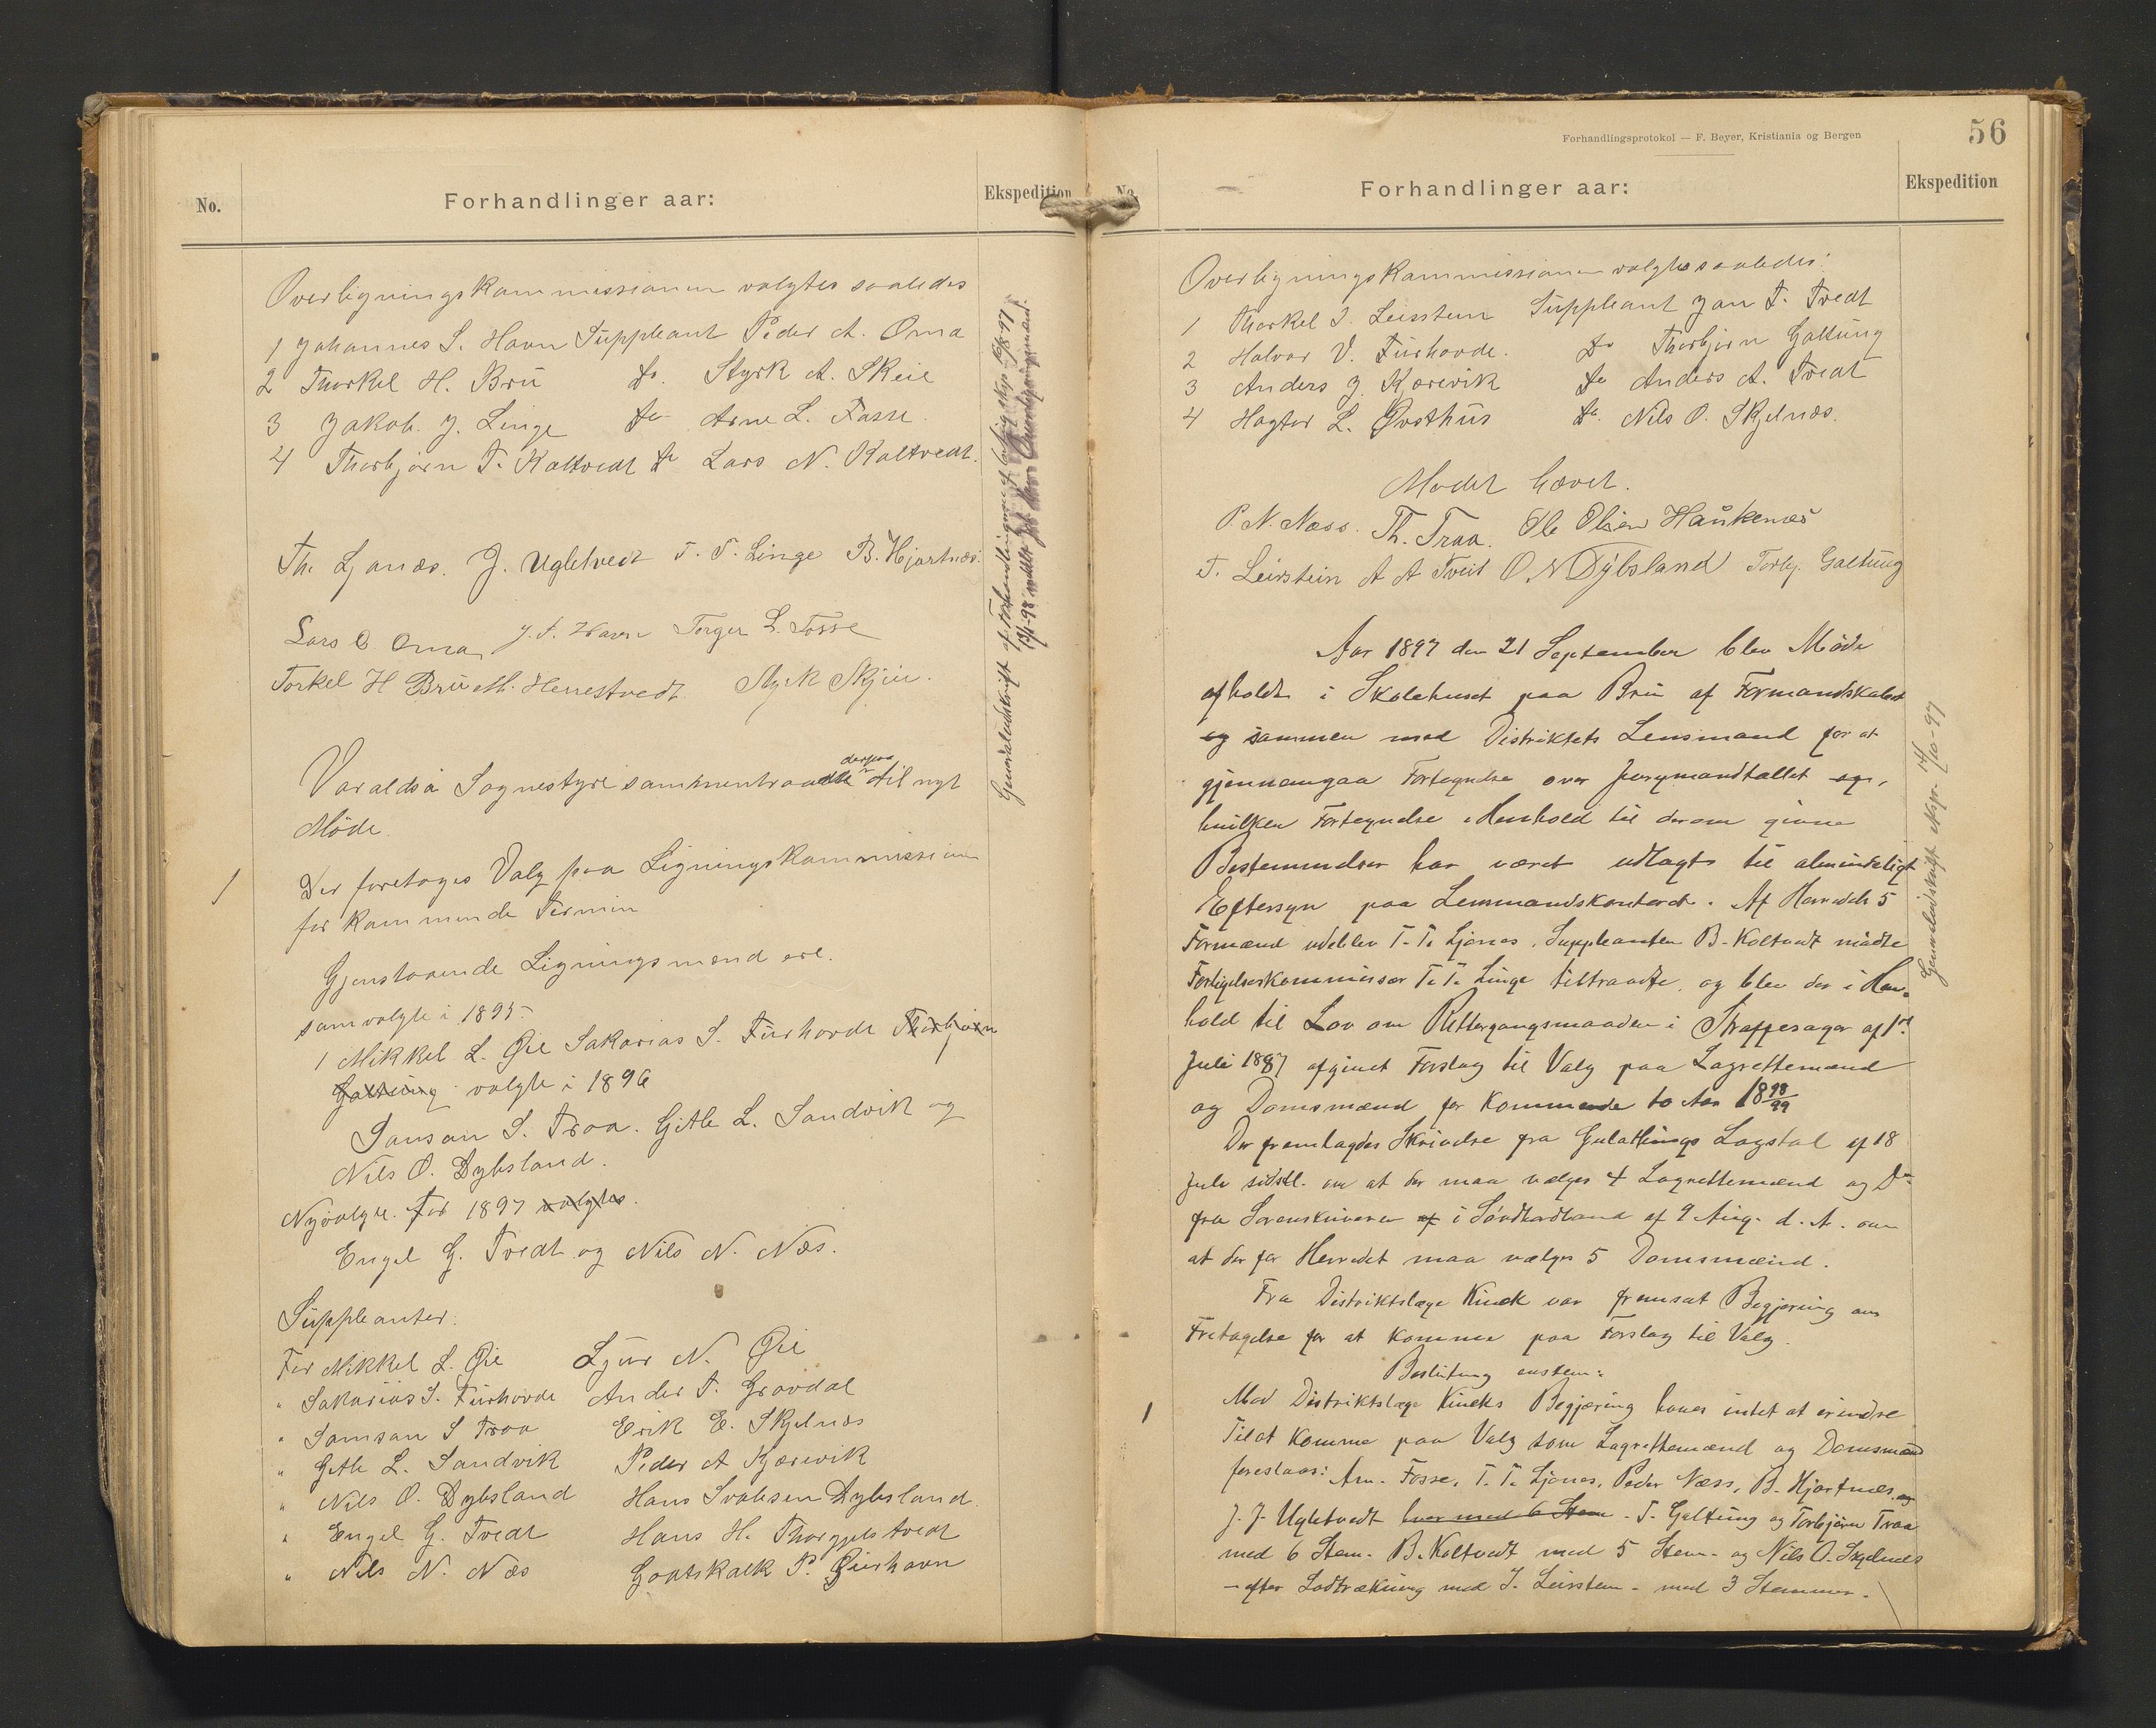 No.
Forhandlinger aar:
Ekspedition
Overligningskommissionen valgtes saaledes
1 Johannes S. Havn Suppleant Peder A. Oma
2 Thorkel H. Bru do. Styrk A. Skeie
3 Jakob. J. Linge do Arne L. Fasse
4 Thorbjørn T. Koltvedt do Lars N. Koltvedt.
Th. Ljanes. J. Ugletvedt T. T. Linge B. Hjartnæs.
Lars O Oma J. S. Havn Torger L. Fosse
Torkel H Bru M. Herrestvedt. Styrk Skjeie.
Varaldsø Sognestyre sammentraadte derpaa til nyt
Møde.
1 Der foretoges Valg paa Ligningskommission
for kommende Termin
Gjenstaaende Ligningsmænd ere.
som valgte i 1895.
1 Mikkel L. Øie Sakarias S. Furhovde Thorbjørn
Galtung valgte i 1896
Samson S. Traa. Gitle L. Sandvik og
Nils O. Dybsland.
Nyvalgte. For 1897 valgtes.
Engel G. Tvedt og Nils N. Næs.
Suppleanter.
For Mikkel L. Øie Sjur N. Øie
" Sakarias S. Furhovde Anders T. Gravdal
" Samson S Traa Erik E. Skjelnæs
" Gitle L. Sandvik Peder A Kjærevik
" Nils O. Dybsland Hans Dybsland
" Engel G. Tvedt Hans H. Thorgjelstvedt
" Nils N. Næs Goatskalk P. Øierhavn
Forhandlingsprotokol — F. Beyer, Kristiania og Bergen
56
No.
Forhandlinger aar:
Ekspedition
Overligningskommissionen valgtes saaledes:
1 Thorkel I. Leirstein Suppleant Jan T. Tvedt
2 Halvor V. Furhovde. Do Thorbjørn Galtung
3 Anders J. Kjærevik do Anders A. Tvedt
4 Hagtor L. Øvsthus do. Nils O. Skjelnæs.
Mødet hævet.
P. N. Næss. Th. Traa. Ole Olsen Haukenæs
T. Leirstein A A Tveit O. N Dybsland Torbj. Galtung
Aar 1897 den 21 September blev Møde
afholdt i Skolehuset paa Bru af Formandskabet
og sammen med Distriktets Lensmand for at
gjennemgaa Fortegnelse over Jurymandtallet og,
hvilken Fortegnelse i Henhold til derom givne
Bestemmelser har været udlagt til almindeligt
Eftersyn paa Lensmandskontoret. Af Herredets 5
Formænd udeblev T. T. Ljanes, Suppleanten B. Koltvedt mødte
Forligelseskommissær T. T. Linge tiltraadte, og blev der i Hen-
hold til Lov om Rettergangsmaaden i Straffesager af 1st
Juli 1887 afgivet Forslag til Valg paa Lagrettemænd
og Domsmænd for kommende to Aar 1898/99
Der fremlagdes Skrivelse fra Gulathings Lagstol af 18
Juli sidstl. om at der maa vælges 4 Lagrettemænd og Do
fra Sorenskriveren af i Søndhordland af 9 Aug. d. A. om
at der for Herredet maa vælges 5 Domsmænd.
Fra Distriktslæge Kinck var fremsat Begjæring om
Fritagelse for at komme paa Forslag til Valg.
Beslutning enstem:
1 Mod Distriktslæge Kincks Begjæring haves intet at erindre
Til at komme paa Valg som Lagrettemænd og Domsmænd
foreslaaes: Arn. Fosse, T. T. Ljanes, Peder Næss, B. Hjartnæs og
J. J. Ugletvedt hver med 6 Stem. T. Galtung og Torbjørn Traa
med 6 Stem. B. Koltvedt med 5 Stem. og Nils O. Skjelnæs
- efter Lodtrækning med T. Leirstein - med 3 Stemmer.
Genneludskrift ekspr. 4/10-97